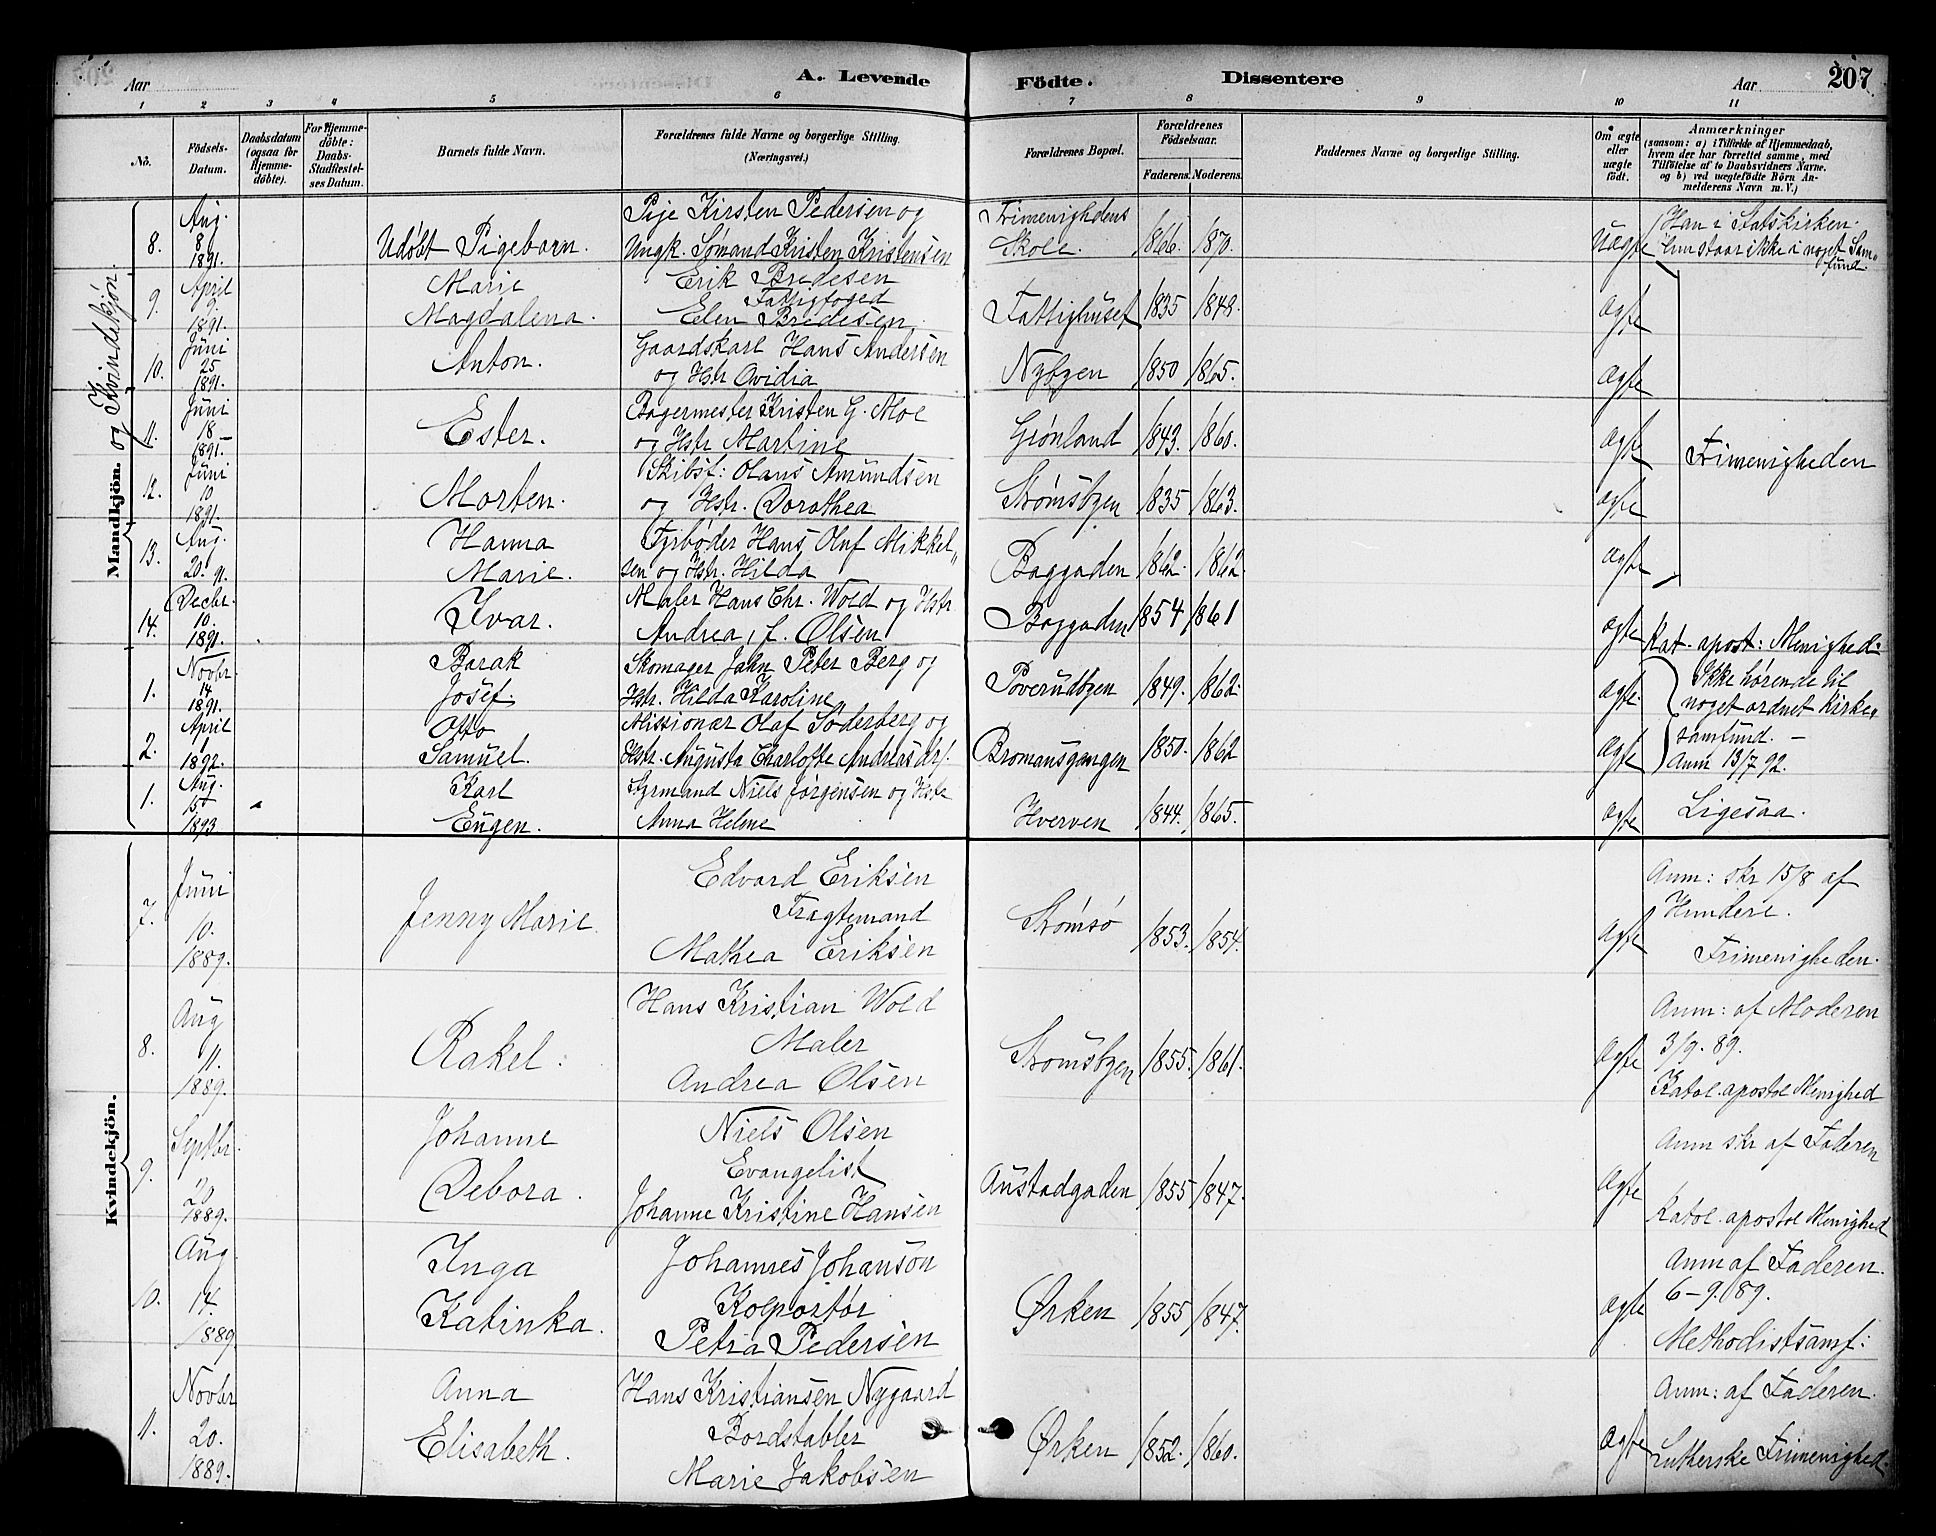 Aar
A. Levende
Födte.
Dissentere
Aar
207
1 2 3 4 5 6 7 8 9 10 11
No.
Födsels-Datum.
Daabsdatum (ogsaa for Hjemme-döbte).
For Hjemme-döbte: Daabs-Stadfæstel-ses Datum.
Barnets fulde Navn.
Forældrenes fulde Navne og borgerlige Stilling. (Næringsvei.)
Forældrenes Bopæl.
Forældrenes Födselsaar.
Faderens. Moderens.
Faddernes Navne og borgerlige Stilling.
Om ægte eller uægte födt.
Anmærkninger
(saasom: a) i Tilfælde af Hjemmedaab,
hvem der har forrettet samme, med
Tilföielse af to Daabsvidners Navne.
og b) ved uægtefödte Börn An-
melderens Navn m. V.)
Mandkjön. og Kvindekjön.
8. Aug. 8 1891. Udøbt Pigebarn. Pige Kirsten Pedersen og
Ungk. Sømand Kristen Kristensen
Frimenighedens Skole. 1866. 1870. Uægte
Han i Statskirken.
Hun staar ikke i noget Sam-
fund.
9. April 9. 1891. Marie Magdalena. Erik Bredesen
Fattigfoged
Elen Bredesen
Fattighuset 1835 1848. ægte
10. Juni 25 1891. Anton. Gaardskarl Hans Andersen
og Hstr Ovidia
Nybyen 1850 1865. ægte
11. Juni 18 1891. Ester. Bagermester Kristen G. Moe
og Hstr Martine
Grønland 1843. 1860. ægte
Frimenigheden
12. Juni 10 1891. Morten. Skibst: Olaus Amundsen
og Hstr. Dorothea
Strømsbyen 1835 1863. ægte
13. Aug. 20. 91. Hanna Marie. Fyrbøder Hans Oluf Mikkel-
sen og Hstr. Hilda
Baggaden 1862. 1862. ægte
14. Decbr. 10. 1891. Ivar. Maler Hans Chr. Wold og Hstr
Andrea, f. Olsen
Baggaden 1854. 1861 ægte
Kat. apost: Menighed.
1. Novbr. 14 1891. Barak Josef. Skomager Jahn Peter Berg og
Hstr. Hilda Karoline
Poverudbyen 1849. 1862. ægte
Ikke hørende til
noget ordnet Kirke-
samfund. —
Anm 13/7 92.
2. April 1 1892. Otto Samuel. Missionær Olaf Söderberg og
Hstr. Augusta Charlotte Andreasdr.
Bromansgangen 1850. 1862 ægte
1. Aug. 15 1893 Karl Eugen. Styrmand Niels Jørgensen og Hstr
Anna Helene
Hverven 1844. 1865. ægte
Ligesaa.
Kvindekjön.
7. Juni 10. 1889. Jenny Marie. Edvard Eriksen
Fragtemand
Mathea Eriksen
Strømsø 1853. 1854. ægte
Anm: skr 15/8 af
Frimenigheden.
8. Aug 11. 1889. Rakel. Hans Kristian Wold
Maler
Andrea Olsen
Strømsbyen 1855. 1861. ægte
Anm: af Moderen
3/9. 89.
Katol. apostol Menighed
9. Septbr. 20 1889. Johanne Debora. Niels Olsen
Evangelist
Johanne Kristine Hansen
Austadgaden 1855 1847. ægte
Anm skr af Faderen
Katol. apostol Menighed
10. Aug 14. 1889 Inga Katinka. Johannes Johanson
Kolportør
Petra Pedersen
Ørken 1855 1847. ægte
Anm af Faderen.
6-9.89.
Methodistsamf:
11. Novbr 20. 1889. Anna Elisabeth. Hans Kristiansen Nygaard
Bordstabler
Marie Jakobsen
Ørken 1852. 1860. ægte
Anm: af Faderen.
Lutherske Frimenighed.